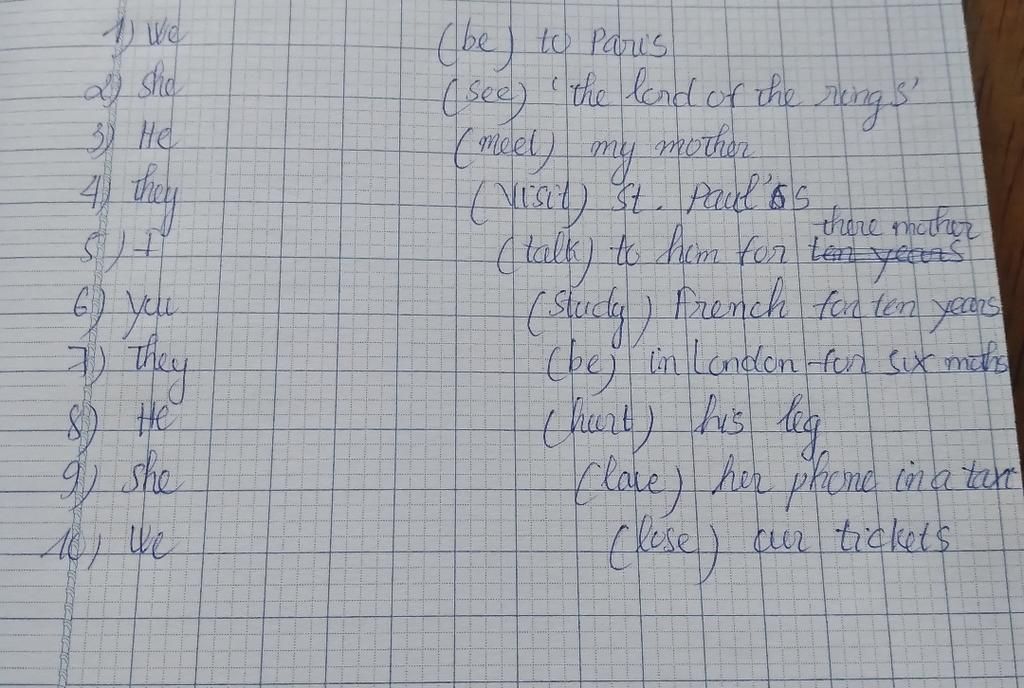 1) We (be) to Paris
2) she (see) 'the lord of the rings'
3) He (meet) my mother
4) they (visit) St. Paul's
there mother
5) I (talk) to him for ten years
6) you (study) French for ten years
7) They (be) in London for six moths
8) He (hurt) his leg
9) she (lave) her phone in a taxi
10) We (lose) our tickets